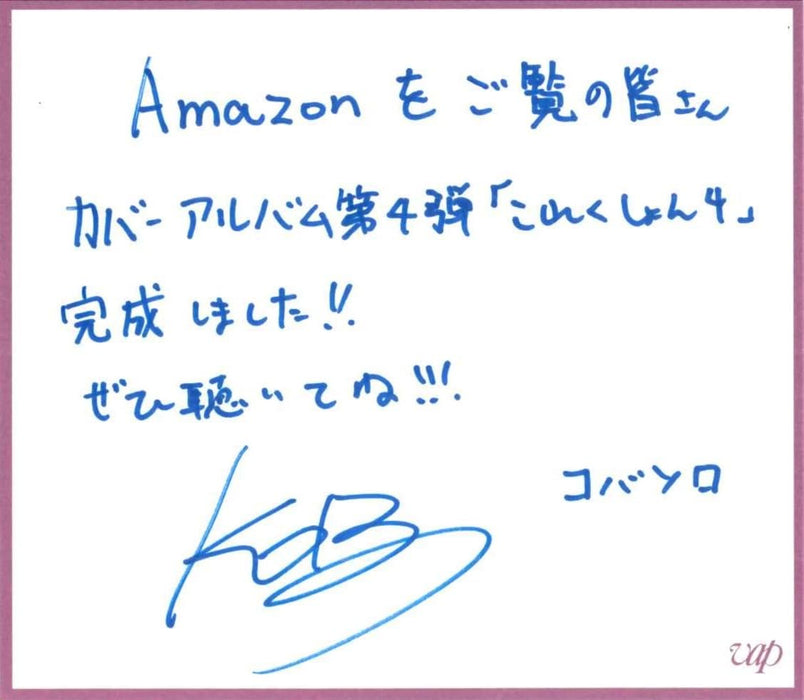 Amazon をご覧の皆さん
カバーアルバム第4弾「これくしょん4」
完成しました!!
ぜひ聴いてね!!!
コバソロ
KOB
vap